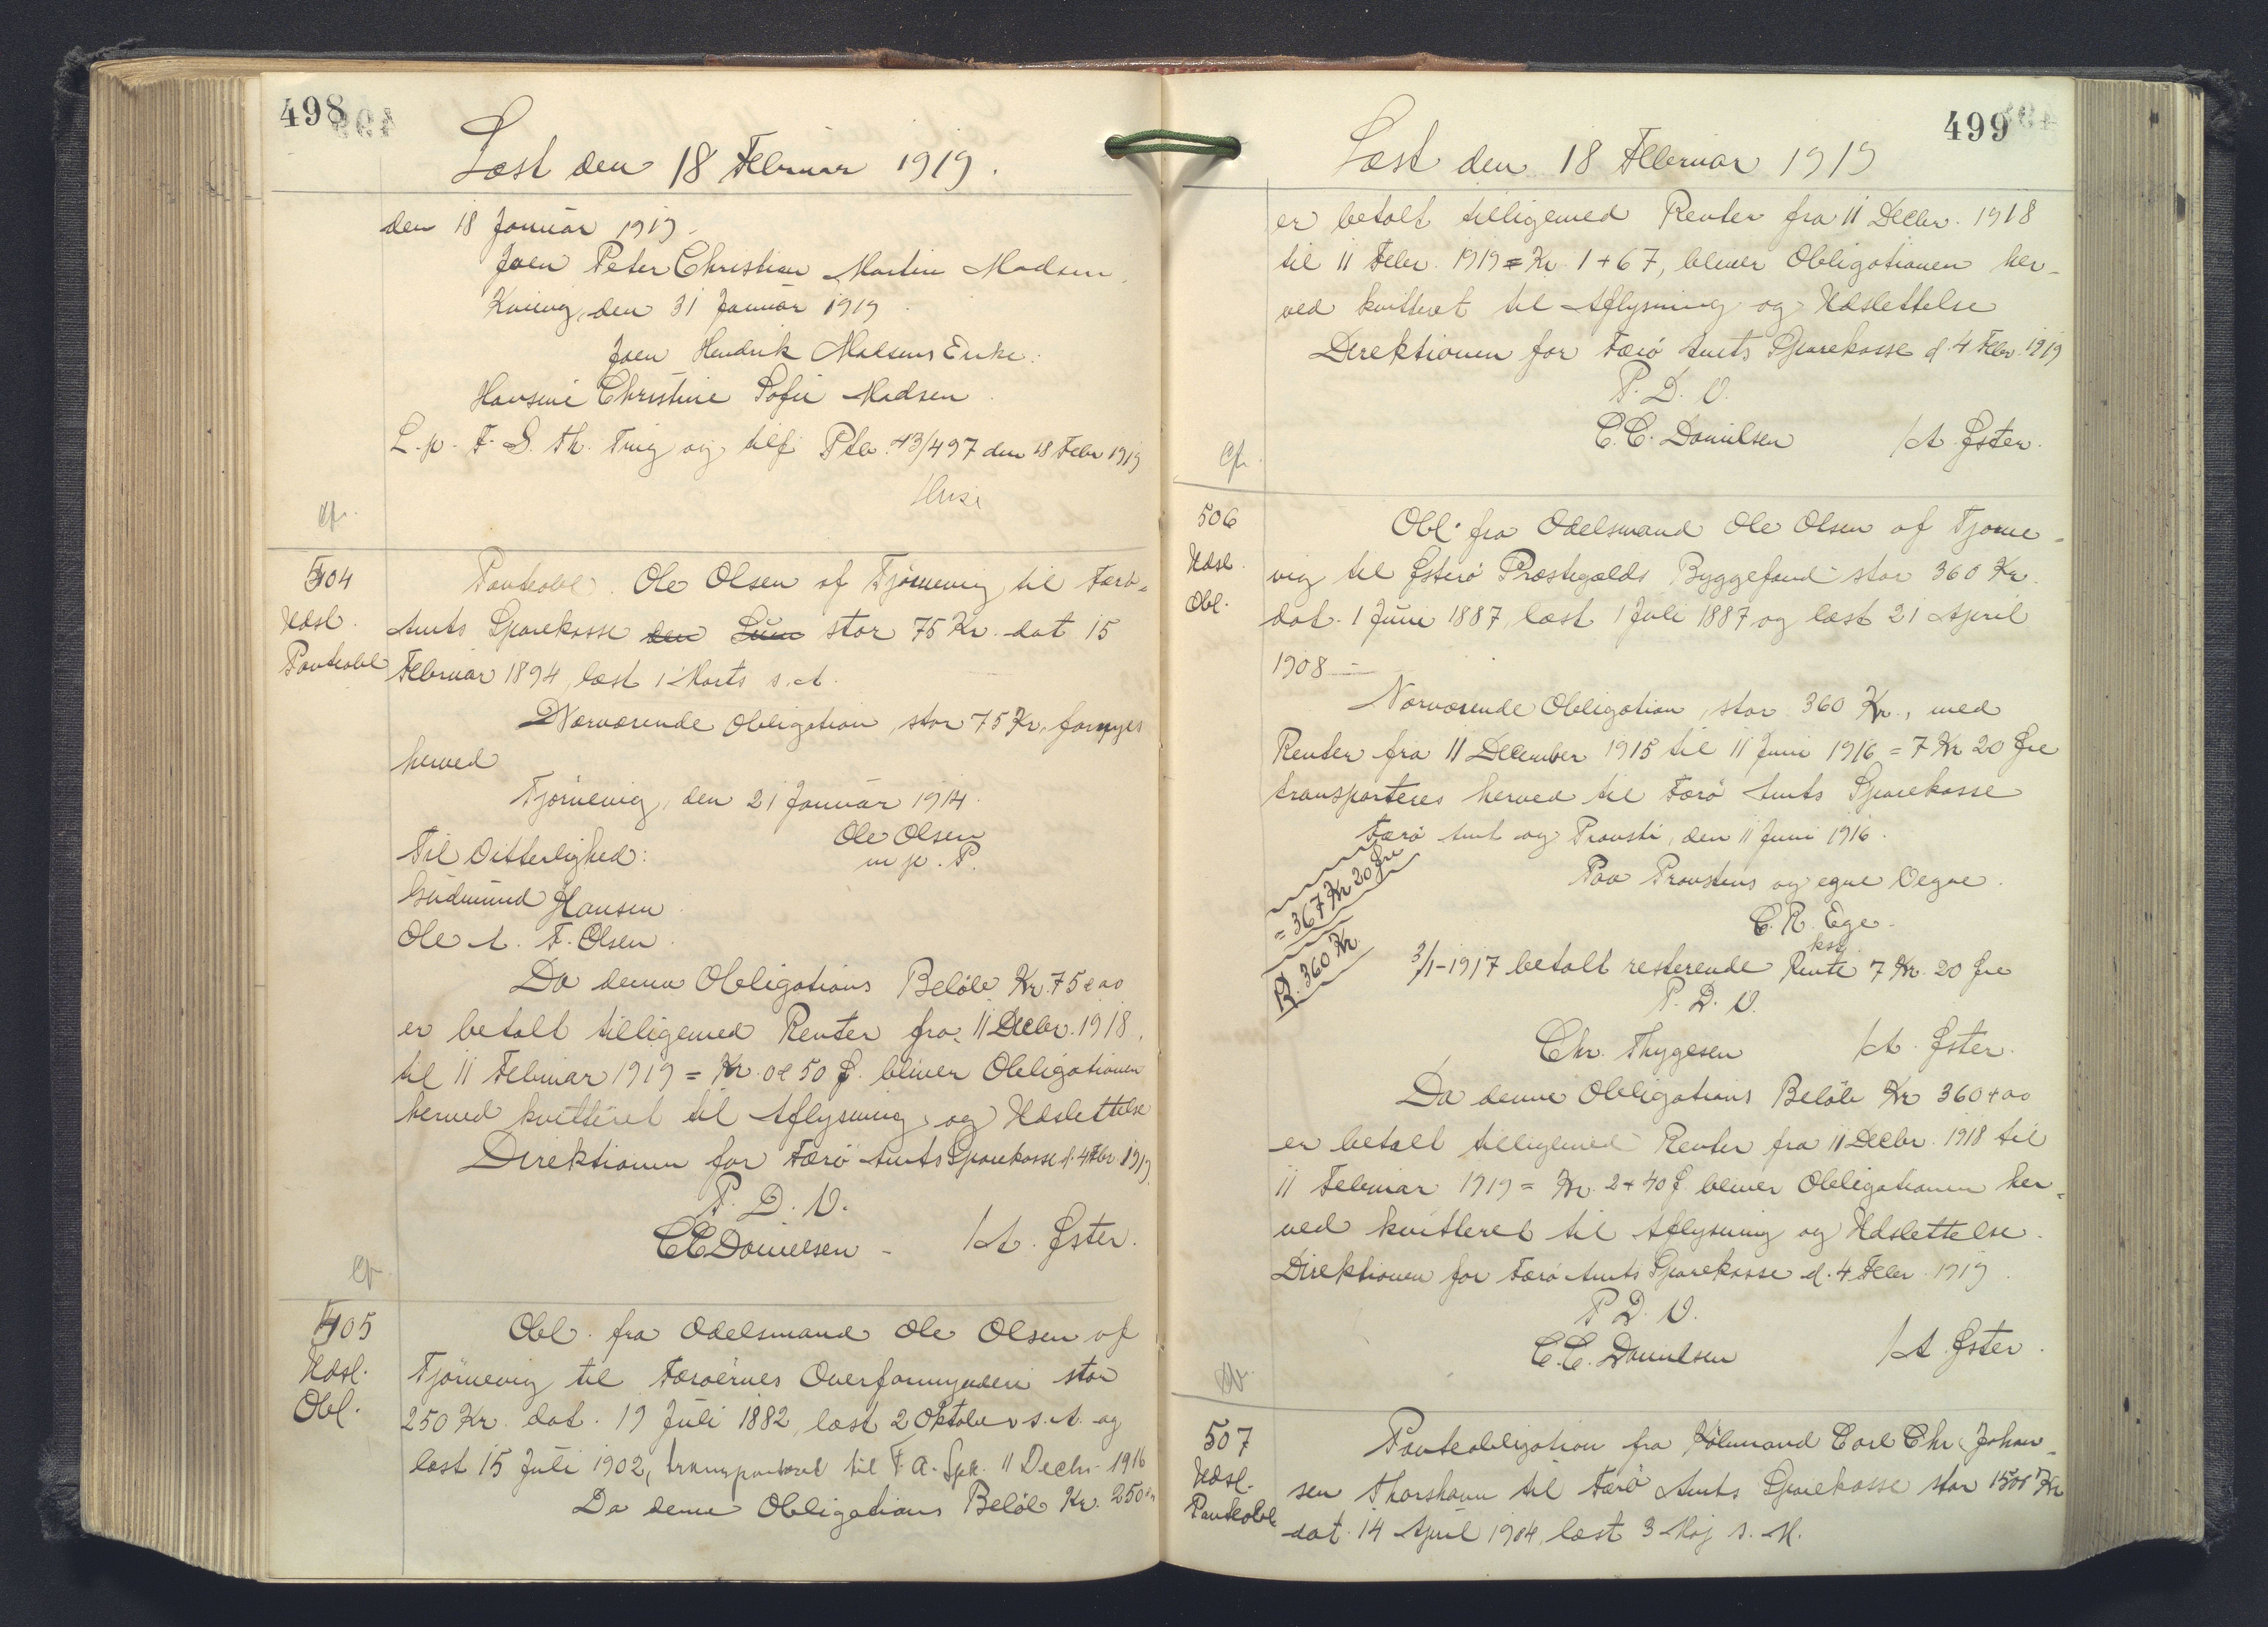 498
Læst den 18 Februar 1919.
den 18 Januar 1919.
Joen Peter Christian Martin Madsen
Kvivig, den 31 Januar 1919
Joen Hendrik Madsens Enke:
Hansine Christine Sofie Madsen
L. p. F. S. Th. Ting og tilf. Ptb. 43/497 den 18 Febr 1919
cfr.
504
Udsl.
Panteobl
Panteobl. Ole Olsen af Tjørnevig til Færø
Amts Sparekasse den Sum stor 75 Kr. dat 15
Februar 1894, læst 1 Marts s. A.
Nærværende Obligation, stor 75 Kr, fornyes
herved
Tjørnevig, den 21 Januar 1914.
Ole Olsen
m. p. P.
Til Vitterlighed:
Gudmund Hansen
Ole A. F. Olsen.
Da denne Obligations Beløb Kr. 75 00
er betalt tilligemed Renter fra 11 Decbr. 1918
til 11 Februar 1919 = Kr. 0 50 Ø. bliver Obligationen
herved kvitteret til Aflysning og Udslettelse
Direktionen for Færø Amts Sparekasse d. 4 Febr 1919
P. D. V.
C C Danielsen - / A. Øster.
cfr.
505
Udsl.
Obl.
Obl. fra Odelsmand Ole Olsen af
Tjørnevig til Færøernes Overformynderi stor
250 Kr. dat. 19 Juli 1882, læst 2 Oktober s. A. og
læst 15 Juli 1902, transporteret til F. A. Spk. 11 Decbr. 1916
Da denne Obligations Beløb Kr. 250
499
Læst den 18 Februar 1919
er betalt tilligemed Renter fra 11 Decbr. 1918
til 11 Febr. 1919 = Kr 1 + 67, bliver Obligationen her-
ved kvitteret til Aflysning og Udslettelse
Direktionen for Færø Amts Sparekasse d. 4 Febr. 1919
P. D. V.
C. C. Danielsen / A. Øster.
cfr.
506
Udsl.
Obl.
Obl. fra Odelsmand Ole Olsen af Tjørne-
vig til Østerø Præstegjælds Byggefond stor 360 Kr.
dat. 1 Juni 1887, læst 1 Juli 1887 og læst 21 April
1908 -
Nærværende Obligation, stor 360 Kr., med
Renter fra 11 December 1915 til 11 Juni 1916 = 7 Kr 20 Øre
transporteres herved til Færø Amts Sparekasse
Færø Amt og Provsti, den 11 Juni 1916.
Paa Provstens og egne Vegne.
C. R. Ege.
kst
= 367 Kr 20 Øre
R. 360 Kr.
3/1-1917 betalt resterende Rente 7 Kr. 20 Øre
P. D. V.
Chr. Thygesen / A. Øster.
Da denne Obligations Beløb Kr 360 + 00
er betalt tilligemed Renter fra 11 Decbr. 1918 til
11 Februar 1919 = Kr. 2 + 40 Ø. bliver Obligationen her-
ved kvitteret til Aflysning og Udslettelse.
Direktionen for Færø Amts Sparekasse d. 4 Febr. 1919
P. D. V.
C. C. Danielsen / A. Øster.
507
Udsl.
Panteobl.
Panteobligation fra Kølmand Carl Chr. Johan-
sen Thorshavn til Færø Amts Sparekasse stor 1500 Kr
dat. 14 April 1904, læst 3 Maj s. A.